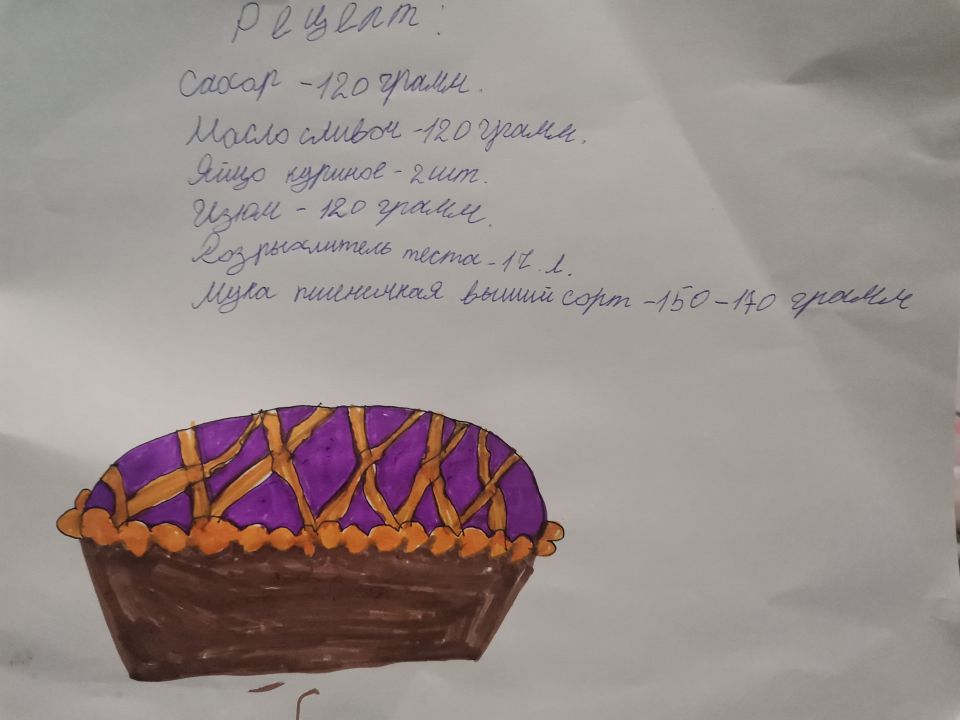 Рецепт:
Сахар - 120 грамм.
Масло сливоч - 120 грамм.
Яйцо куриное - 2 шт.
Изюм - 120 грамм.
Розрыхлитель теста - 1 ч. л.
Мука пшеничная выший сорт - 150 - 170 грамм